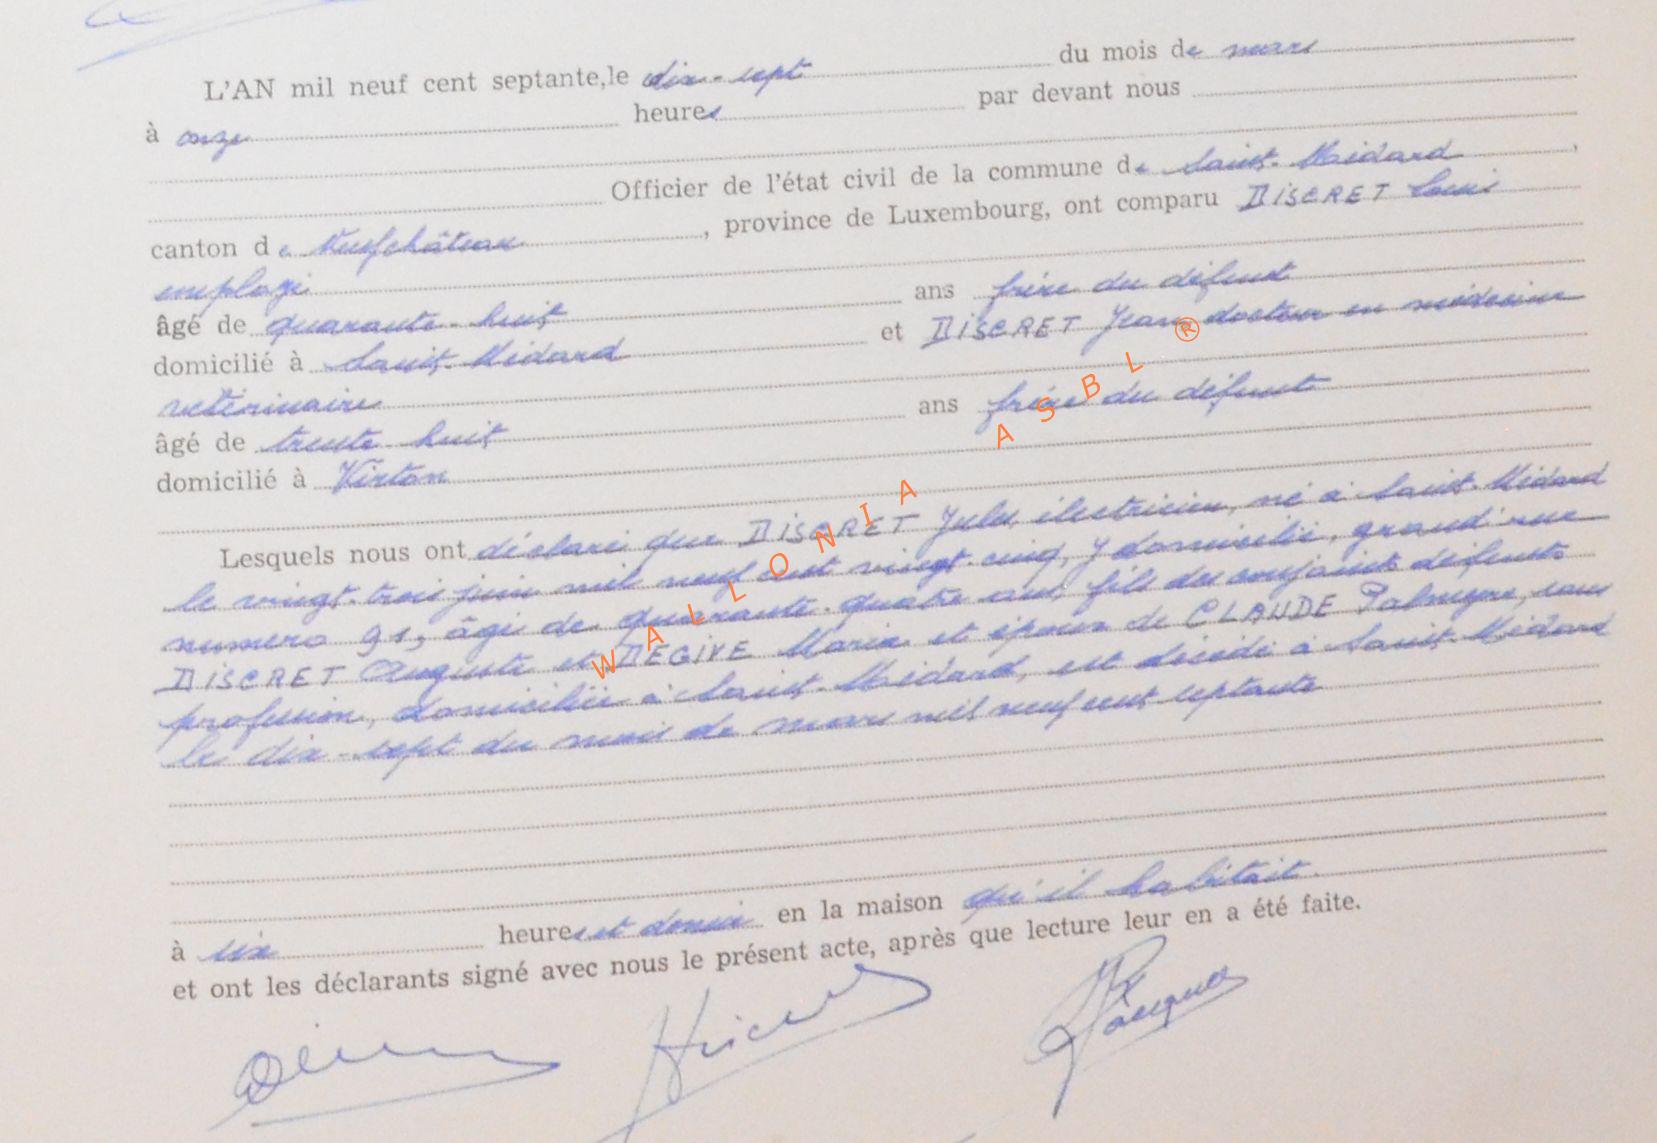 L'AN mil neuf cent septante, le dix-sept du mois de mars
à onze heures par devant nous
Officier de l'état civil de la commune de Saint-Médard,
canton de Neufchâteau, province de Luxembourg, ont comparu DISCRET Louis
employé
âgé de quarante-huit ans frère du défunt
domicilié à Saint-Médard et DISCRET Jean docteur en médecine
vétérinaire
âgé de trente huit ans frère du défunt
domicilié à Virton
Lesquels nous ont déclaré que DISCRET Jules, électricien, né à Saint-Médard
le vingt-trois juin mil neuf cent vingt-cinq, y domicilié, grand'rue
numéro 91, âgé de quarante-quatre ans, fils des conjoints défunts
DISCRET Auguste et DEGIVE Maria et époux de CLAUDE Palmyre, sans
profession, domiciliée à Saint-Médard, est décédé à Saint-Médard
le dix-sept du mois de mars mil neuf cent septante
à six heures et demie en la maison qu'il habitait.
et ont les déclarants signé avec nous le présent acte, après que lecture leur en a été faite.
WALLONIA ASBL ®